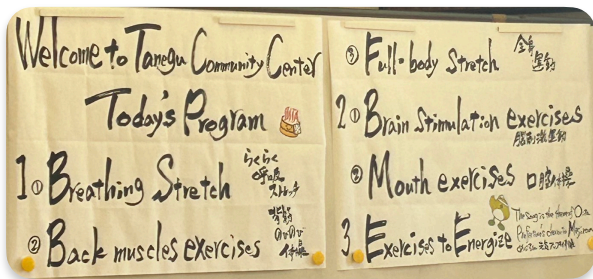 Welcome to Tanegu Community Center
Today's Program
1 ① Breathing Stretch
らくらく
呼吸
ストレッチ
② Back muscles exercises
背筋
のびのび
体操
③ Full-body Stretch
全身
運動
2 ① Brain Stimulation exercises
脳刺激運動
② Mouth exercises 口腔体操
3 Exercises to Energize
The song is the theme of Oita
Prefecture's